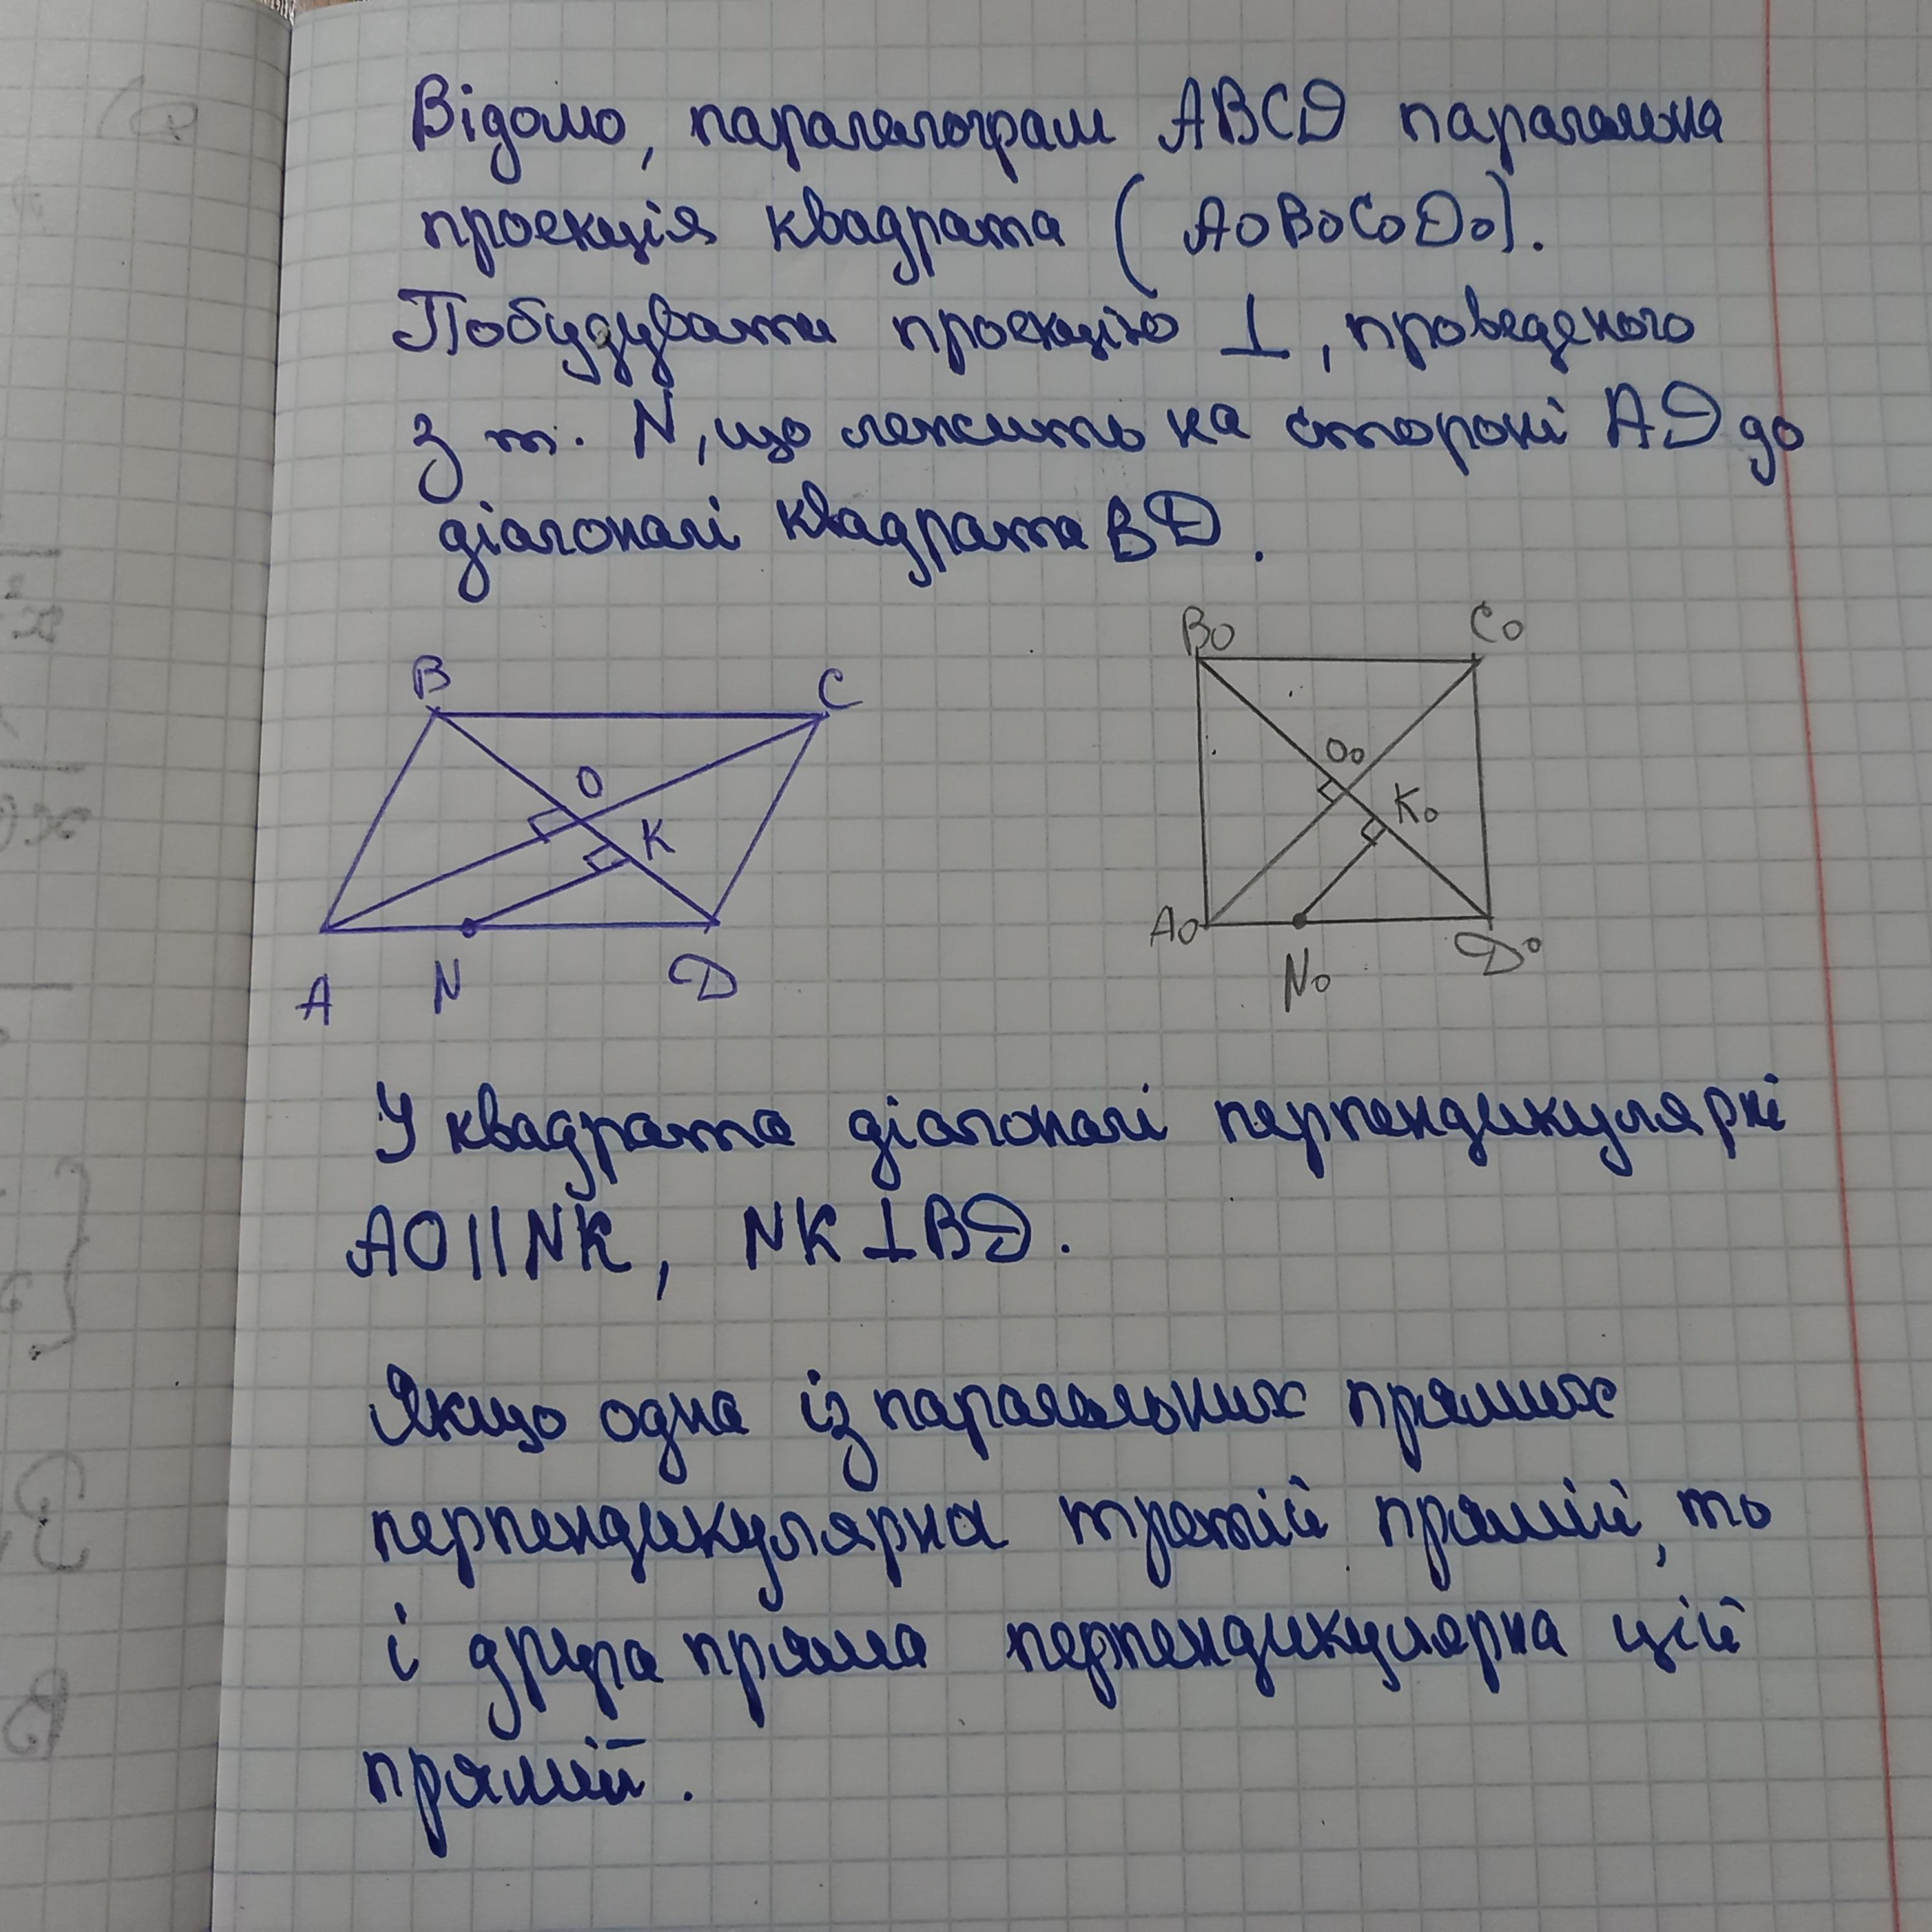 Відомо, паралелограм ABCD паралельна
проекція квадрата (A0B0C0D0).
Побудувати проекцію ⊥, проведеного
з т. N, що лежить на стороні AD до
діагоналі квадрата BD.
B C
O
K
A N D
B0 C0
O0
K0
A0 N0 D0
У квадрата діагоналі перпендикулярні
AO||NK, NK⊥BD.
Якщо одна із паралельних прямих
перпендикулярна третій прямій, то
і друга пряма перпендикулярна цій
прямій.